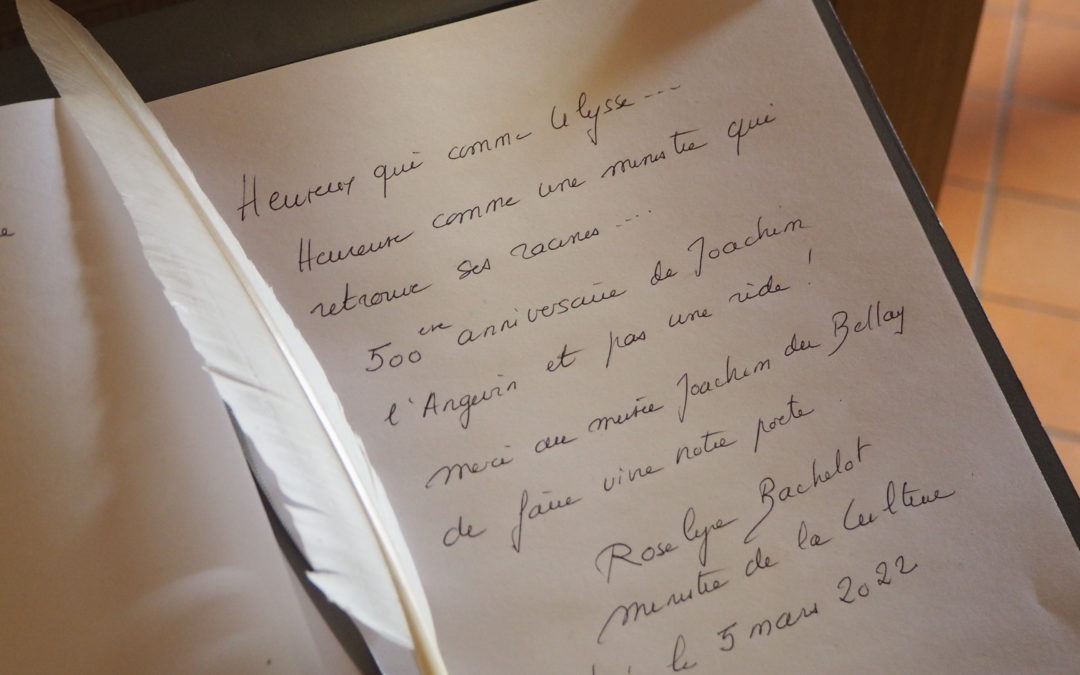 e
Heureux qui comme Ulysse...
Heureuse comme une ministre qui
retrouve ses racines...
500ème anniversaire de Joachim
l'Angevin et pas une ride !
merci au musée Joachim du Bellay
de faire vivre notre poète
Roselyne Bachelot
ministre de la Culture
le 5 mars 2022